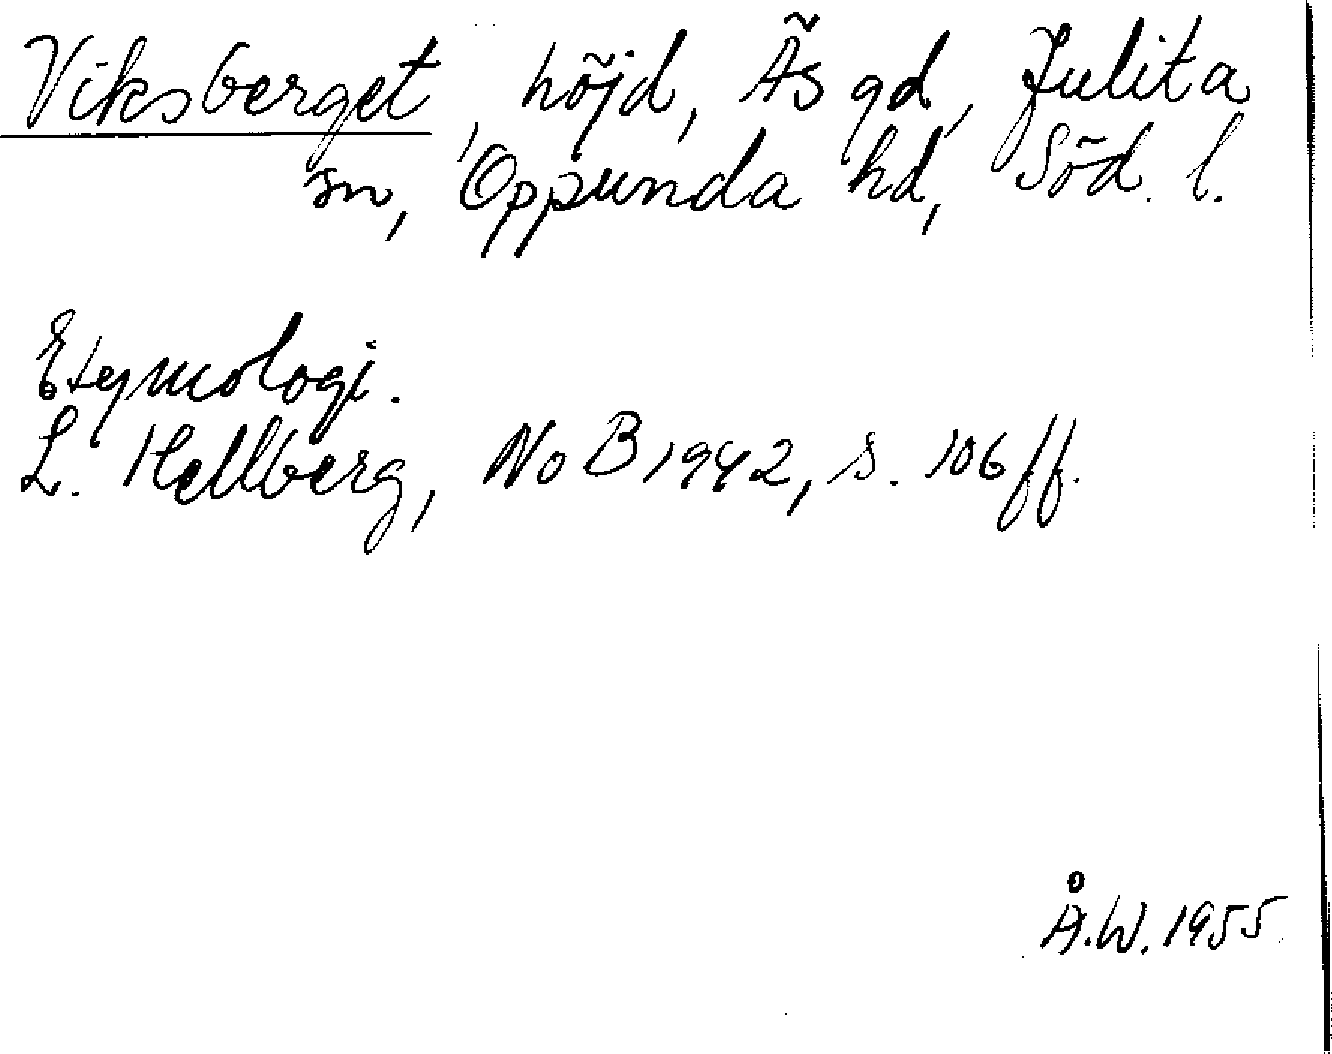 Viksberget, höjd, Äs gd, Julita
sn, Oppunda hd, Söd. l.
Etymologi.
L. Hellberg, NoB 1942, s. 106 ff.
Å.W. 1955